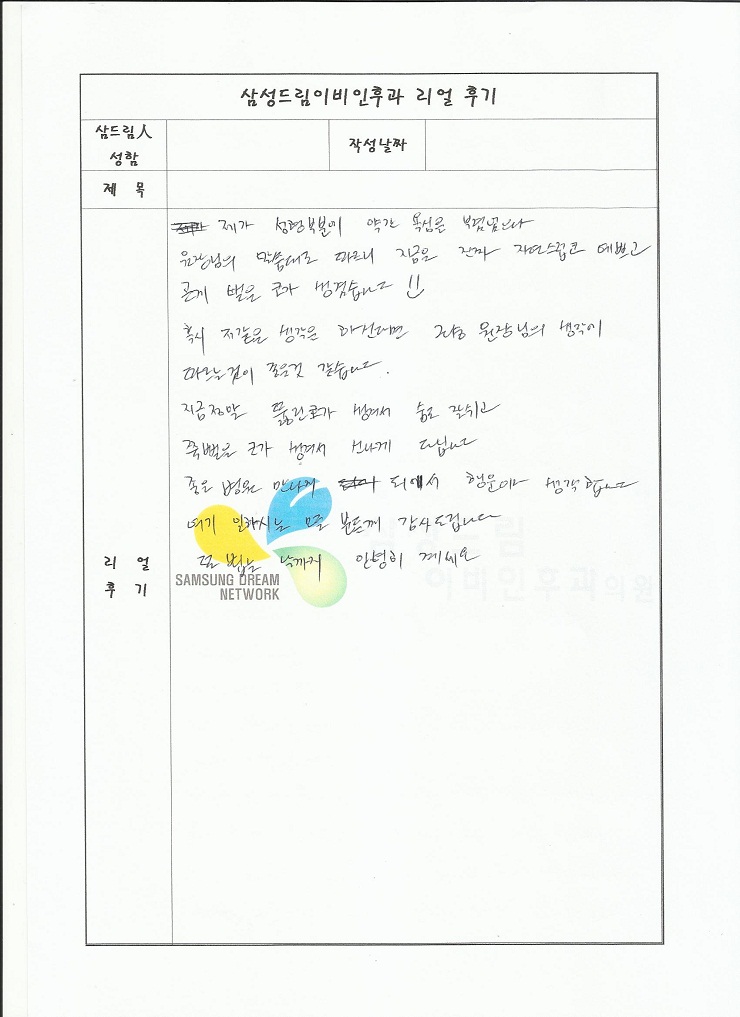 삼성드림이비인후과 리얼 후기
삼드림人
성함
작성날짜
제 목
제가 성형부분이 약간 욕심을
원장님의 말씀대로 따르니 지금은 진짜 자연스럽고 예쁘고
곧게 뻗은 코가 생겼습니다 !!
혹시 저같은 생각은 하신다면 그냥 원장님의 생각에
따르는것이 좋은것 같습니다.
지금정말 뚫린코가 생겨서 숨도 잘쉬고
쭉뻗은 코가 생겨서 신나게 다닙니다
좋은 병원 만나게 되에서 행운이라 생각합니다
여기 일하시는 모든 분들께 감사드립니다
또 뵙는 날까지 안녕히 계세요
리 얼
후 기
SAMSUNG DREAM
NETWORK
삼성드림
이비인후과의원